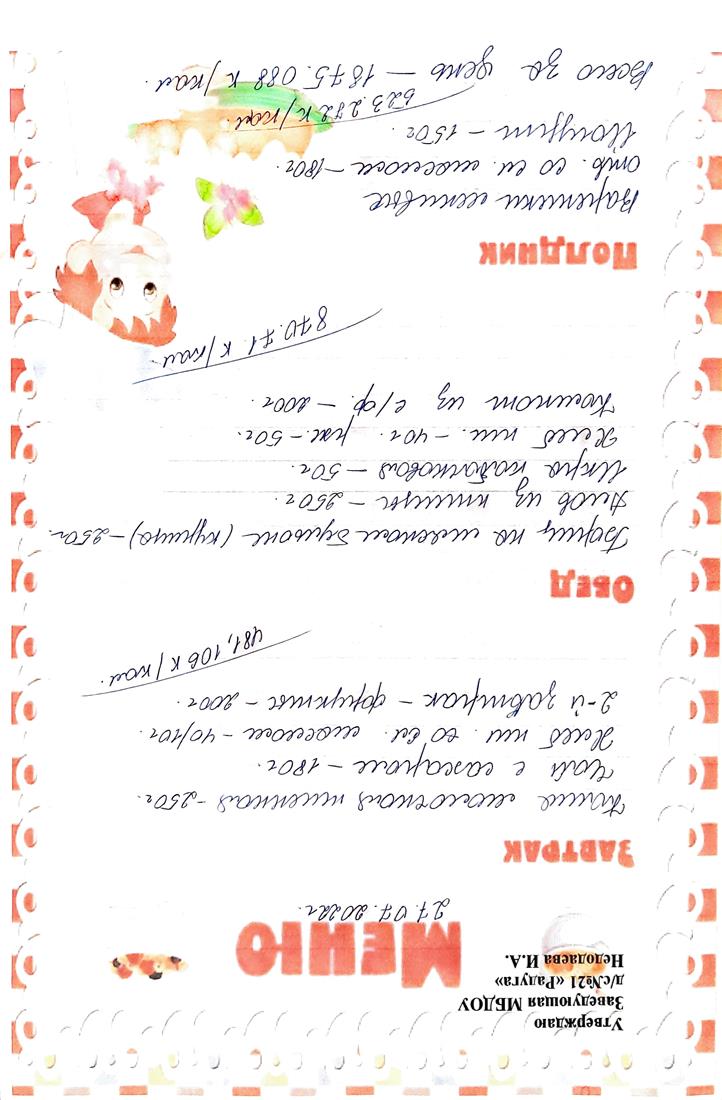 Утверждаю
Заведующая МБДОУ
д/с№21 «Радуга»
Недодаева И.А.
Меню
27.07.2022г.
Завтрак
Каша молочная пшенная - 250г.
Чай с сахаром - 180г.
Хлеб пш. со сл. маслом - 40/10г.
2-й завтрак - фрукты - 200г.
481,106 к/кал.
Обед
Борщ на мясном бульоне (курица) - 250г.
Плов из птицы - 250г.
Икра кабачковая - 50г.
Хлеб пш. - 40г. рж. - 50г.
Компот из с/фр. - 200г.
870.71 к/кал.
Полдник
Вареники ленивые
отв. со сл. маслом - 180г.
Йогурт - 150г.
523.272 к/кал.
Всего за день - 1875.088 к/кал.